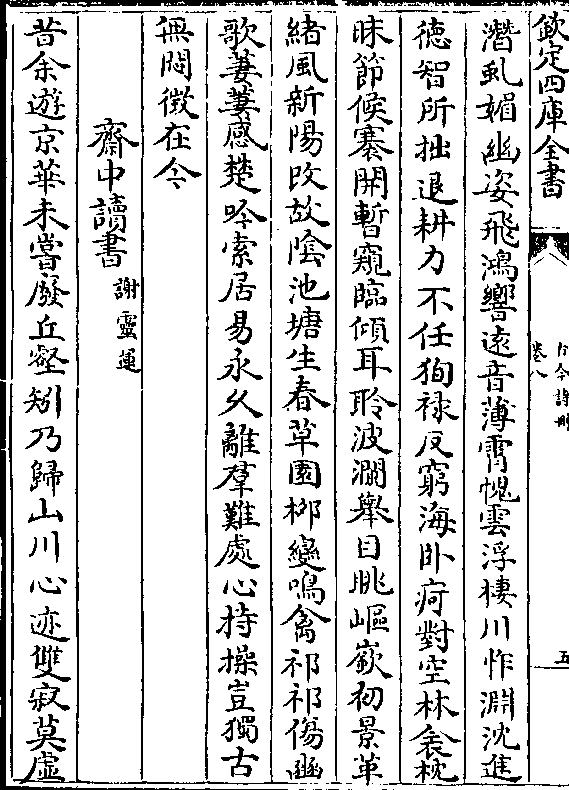 欽定四庫全書
古今詩刪
卷八
五
潛虬媚幽姿飛鴻響遠音薄霄愧雲浮棲川怍淵沈進
德智所拙退耕力不任狥祿反窮海卧疴對空林衾枕
昧節候褰開暫窺臨傾耳聆波瀾舉目眺嶇嶔初景革
緒風新陽改故陰池塘生春草園栁變鳴禽祁祁傷豳
歌萋萋感楚吟索居易永久離羣難處心持操豈獨古
無悶徵在今
齋中讀書
謝靈運
昔余遊京華未嘗廢丘壑矧乃歸山川心迹雙寂莫虛